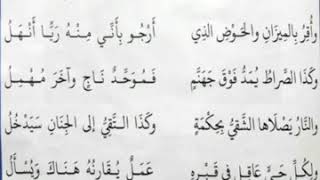 وَأُقِرُّ بِالمِيزَانِ وَالحَوْضِ الذِي أَرْجُو بِأَنِّي مِنْهُ رَيًّا أَنْهَلُ
وَكَذَا الصِّرَاطُ يُمَدُّ فَوْقَ جَهَنَّمٍ فَمُوَحِّدٌ نَاجٍ وَآخَرَ مُهْمِلُ
وَالنَّارُ يَصْلَاهَا الشَّقِيُّ بِحِكْمَةٍ وَكَذَا التَّقِيُّ إلى الجِنَانِ سَيَدْخُلُ
وَلِكُلِّ حَيٍّ عَاقِلٍ فِي قَبْرِهِ عَمَلٌ يُقَارِنُهُ هُنَاكَ وَيُسْأَلُ